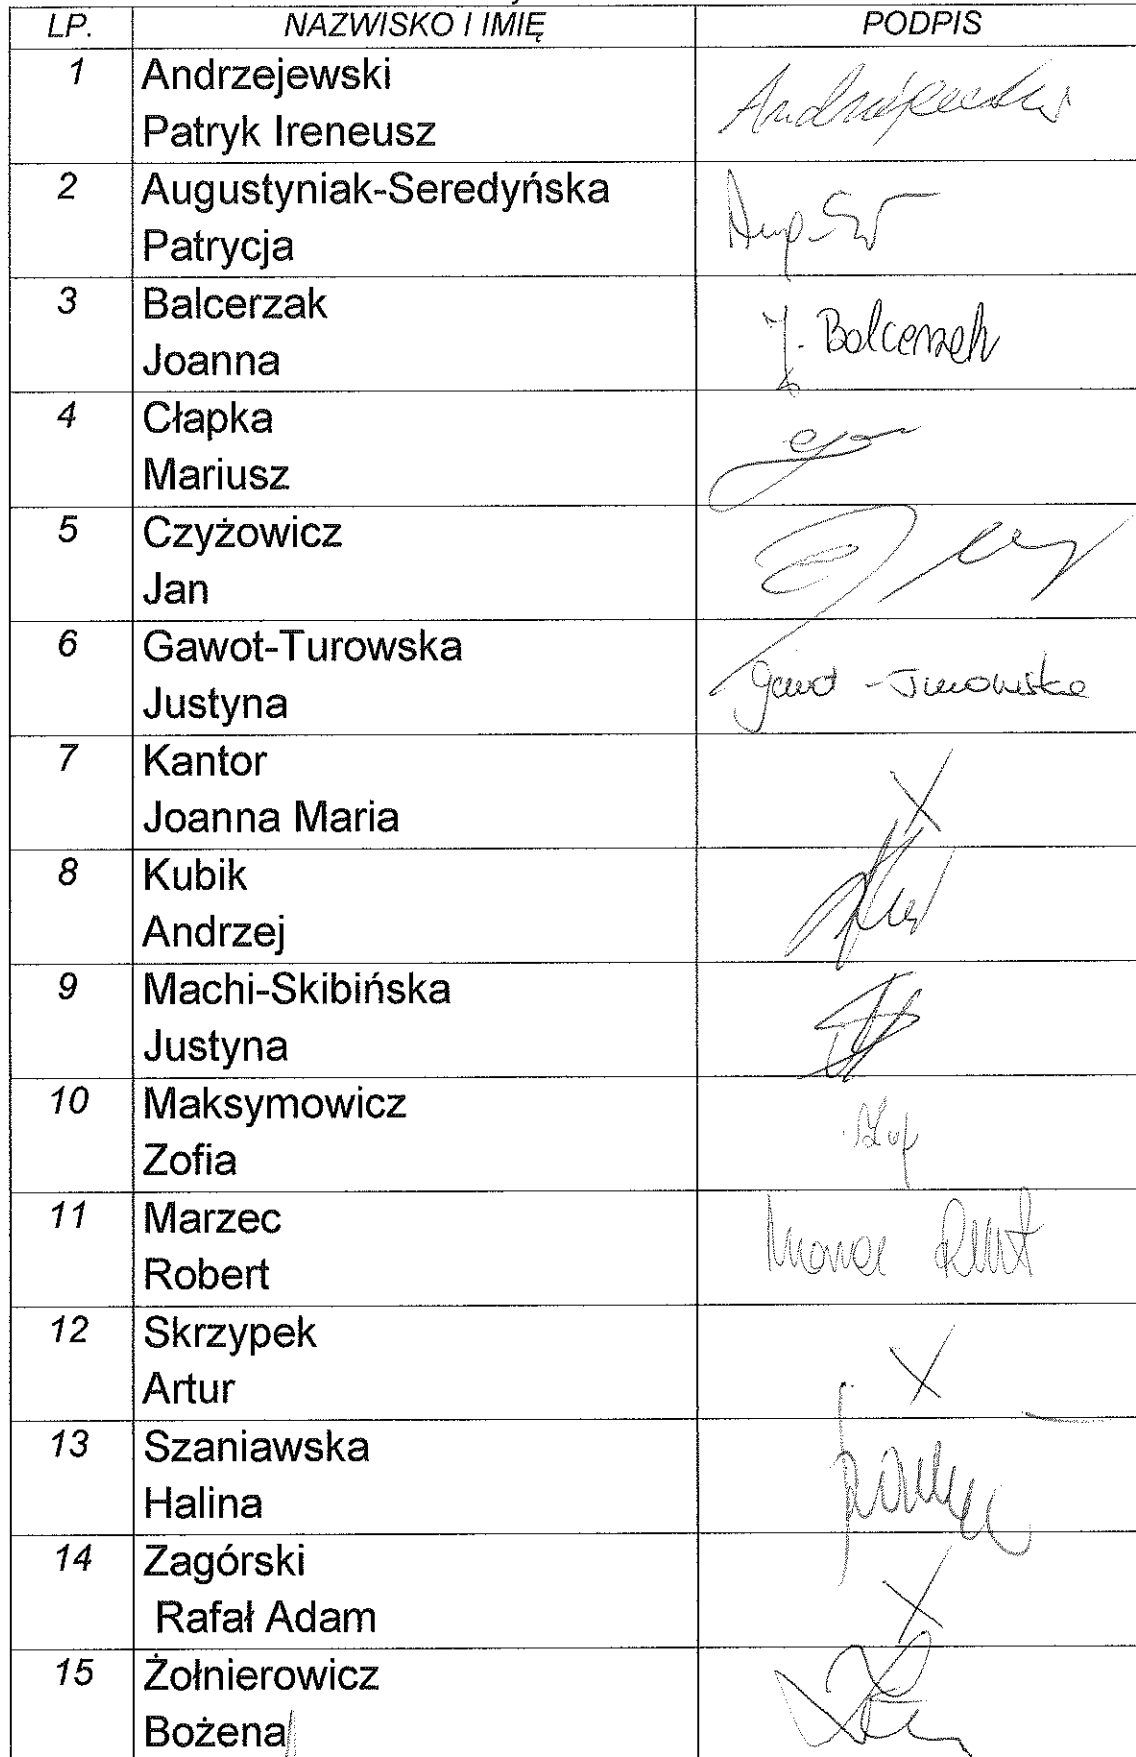 LP. NAZWISKO I IMIĘ PODPIS
1 Andrzejewski
Patryk Ireneusz
Andrzejewski
2 Augustyniak-Seredyńska
Patrycja
3 Balcerzak
Joanna
J. Balcerzak
4 Cłapka
Mariusz
5 Czyżowicz
Jan
6 Gawot-Turowska
Justyna
Gawot-Turowska
7 Kantor
Joanna Maria
X
8 Kubik
Andrzej
9 Machi-Skibińska
Justyna
10 Maksymowicz
Zofia
11 Marzec
Robert
Marzec Robert
12 Skrzypek
Artur
X
13 Szaniawska
Halina
14 Zagórski
Rafał Adam
X
15 Żołnierowicz
Bożena